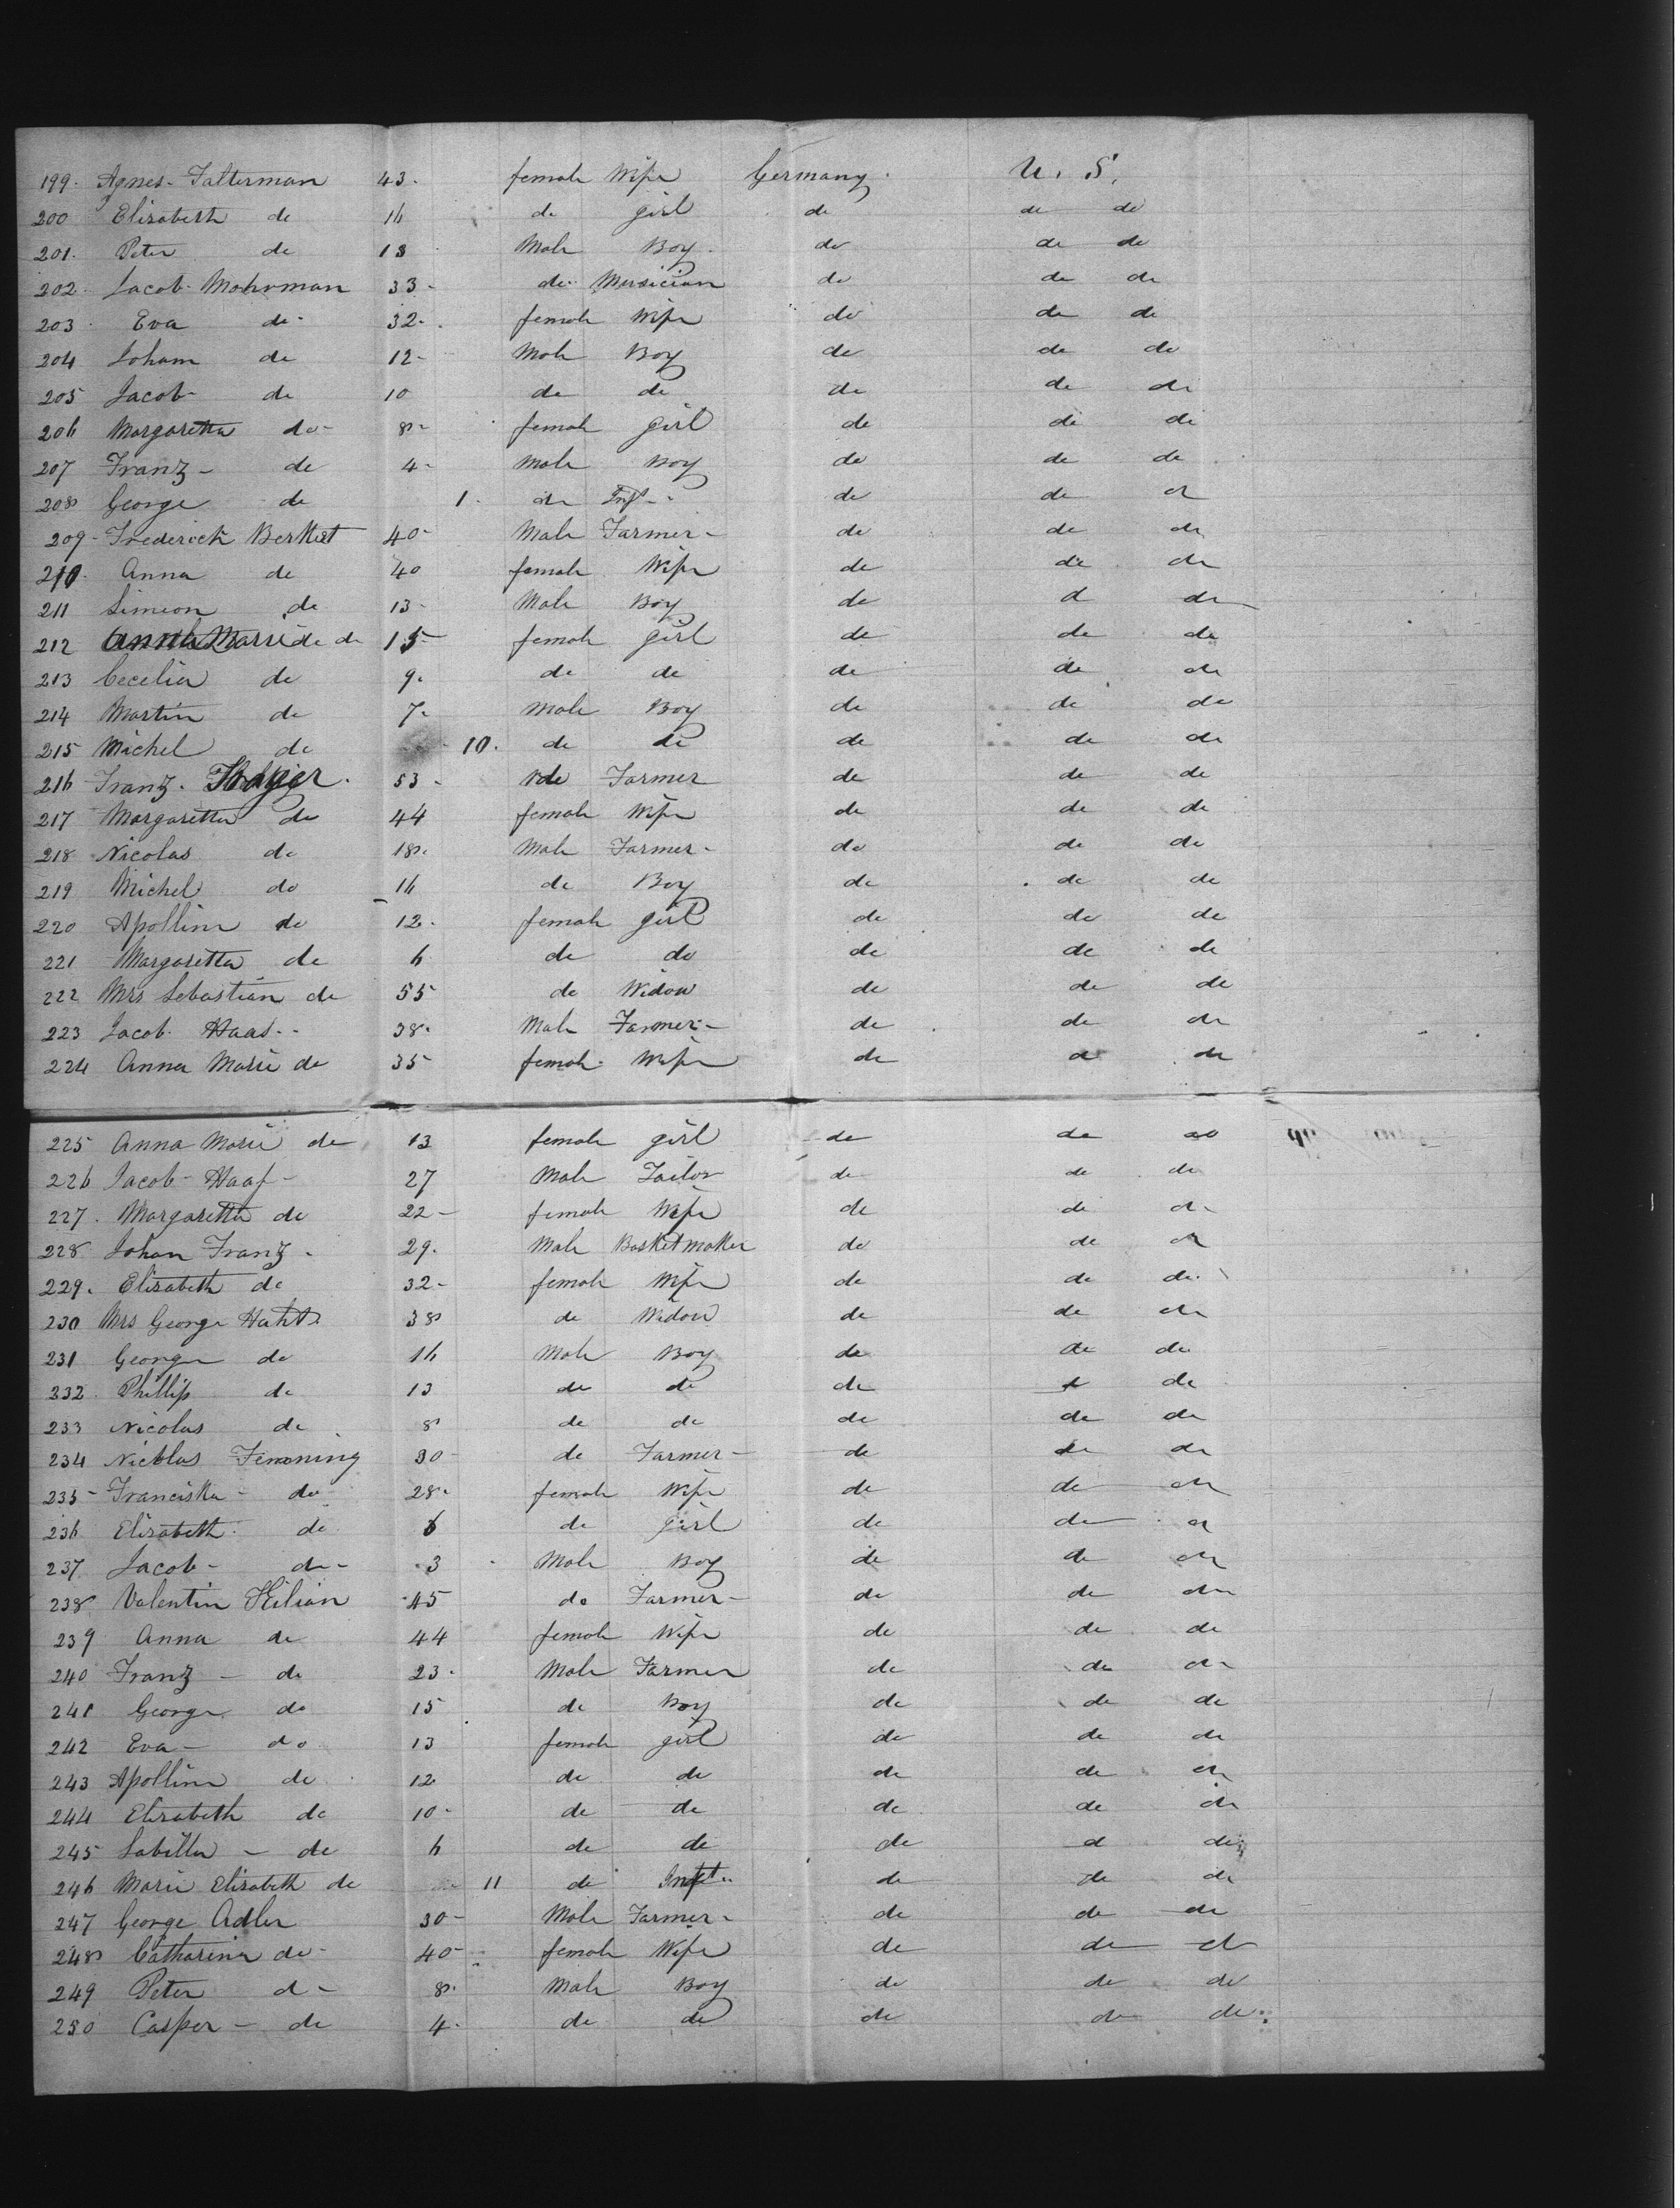 199. Agnes Falterman 43. female Wife Germany. U. S.
200 Elizabeth do 16 do girl do do do
201. Peter do 13 Male Boy. do do do
202. Jacob Mohrman 33 - do Musician do do do
203. Eva do - 32. female Wife do do do
204 Johann do 12 - Male Boy do do do
205 Jacob - do 10 do do do do do
206 Margaretta do - 8 - female girl do do do
207 Franz - do 4 - Male Boy do do do
208 George do 1. do Inft. do do do
209 - Frederick 40 - Male Farmer - do do do
210. Anna do 40 female Wife do do do
211 Simeon do 13 - Male Boy do do do
212 Anna Marie do 15 - female girl do do do
213 Cecelia do 9. do do do do do
214 Martin do 7. Male Boy do do do
215 Michel do 10. do do do do do
216 Franz. 53 - do Farmer do do do
217 Margaretta do 44 female Wife do do do
218 Nicolas do 18. Male Farmer - do do do
219 Michel do 16 do Boy do do do
220 Apollina do 12. female girl do do do
221 Margaretta do 6 do do do do do
222 Mrs Sebastian do 55 do Widow do do do
223 Jacob Haas - - 38. Male Farmer - do do do
224 Anna Marie do 35 - female Wife do do do
225 Anna Marie do 13 female girl do do do
226 Jacob - Haaf - 27 Male Tailor do do do
227. Margaretta do 22 - female Wife do do do
228 Johan Franz - 29. Male Basketmaker do do do
229. Elizabeth do 32 - female Wife do do do
230 Mrs George 38 do Widow do do do
231 George do 16 Male Boy do do do
232 Phillip do 13 do do do do do
233 Nicolas do 8 do do do do do
234 Nicolas 30 - do Farmer - do do do
235 - Franciska do 28. female Wife do do do
236 Elizabeth do 6 do girl do do do
237 Jacob - do - 3 Male Boy do do do
238 Valentin Kilian 45 do Farmer - do do do
239 Anna do 44 female Wife do do do
240 Franz - do 23. Male Farmer do do do
241 George do 15 do Boy do do do
242 Eva - do 13 female girl do do do
243 Apollina do 12 do do do do do
244 Elizabeth do 10 - do do do do do
245 Sabilla - do 6 do do do do do
246 Marie Elizabeth do 11 do Inft. do do do
247 George Adler 30 - Male Farmer - do do do
248 Catharina do - 40 - female Wife do do do
249 Peter do - 8. Male Boy do do do
250 Casper - do 4. do do do do do